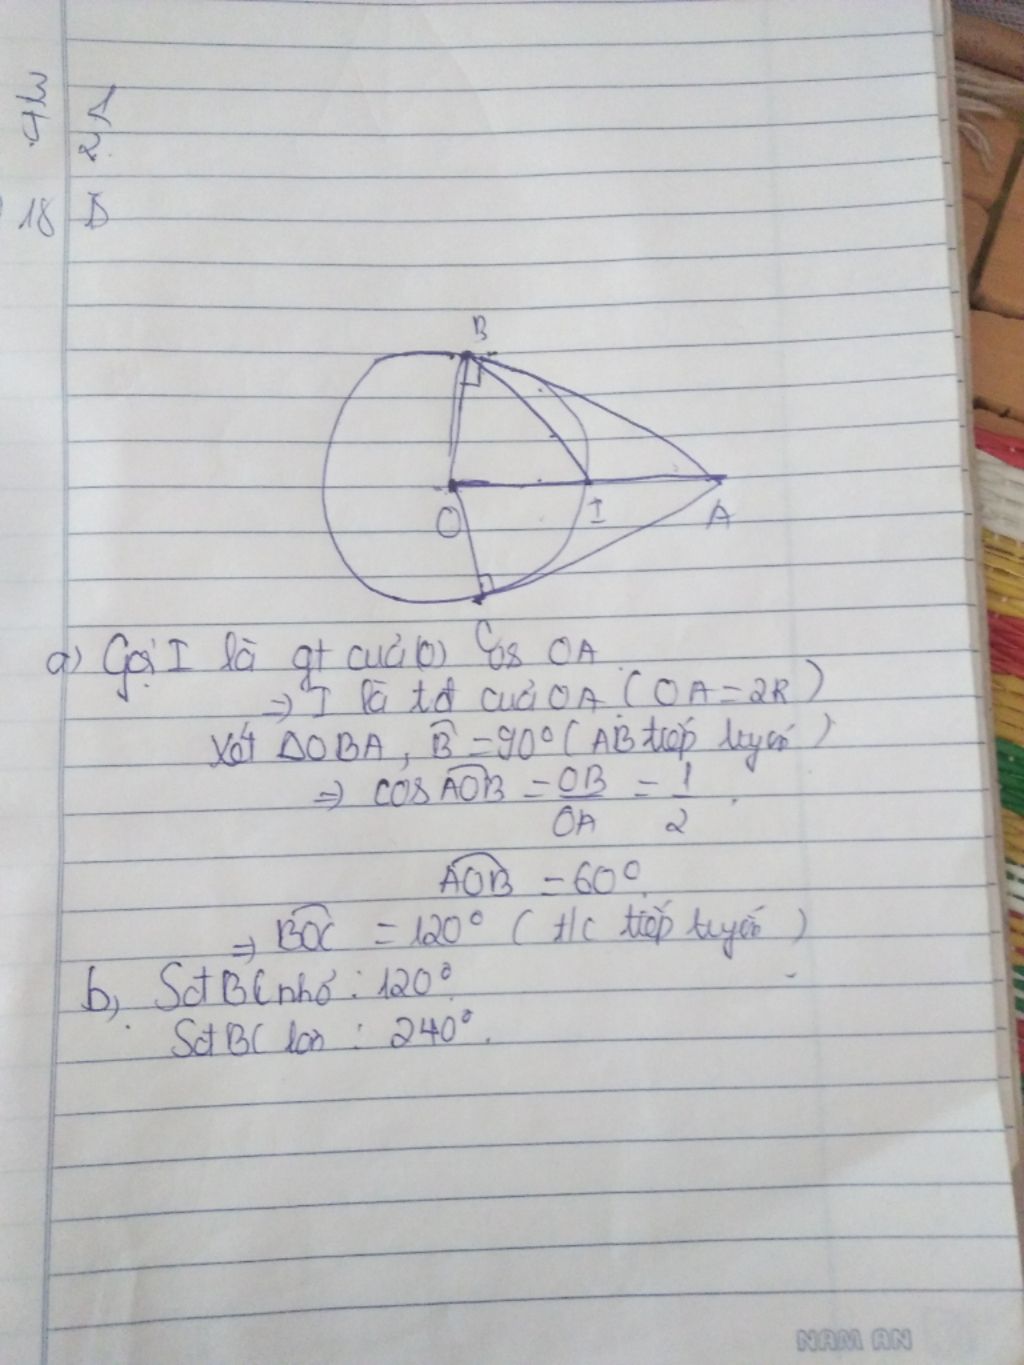 4h
2 A
18 D
B
O
I
A
C
a) Gọi I là gt của (O) OA
=> I là tđ của OA (OA = 2R)
Xét ΔOBA, B̂ = 90° (AB tiếp tuyến)
=> cos AOB = OB/OA = 1/2.
AOB = 60°.
=> BOC = 120° (t/c tiếp tuyến)
b, Sđ BC nhỏ : 120°.
Sđ BC lớn : 240°.
NAM AN